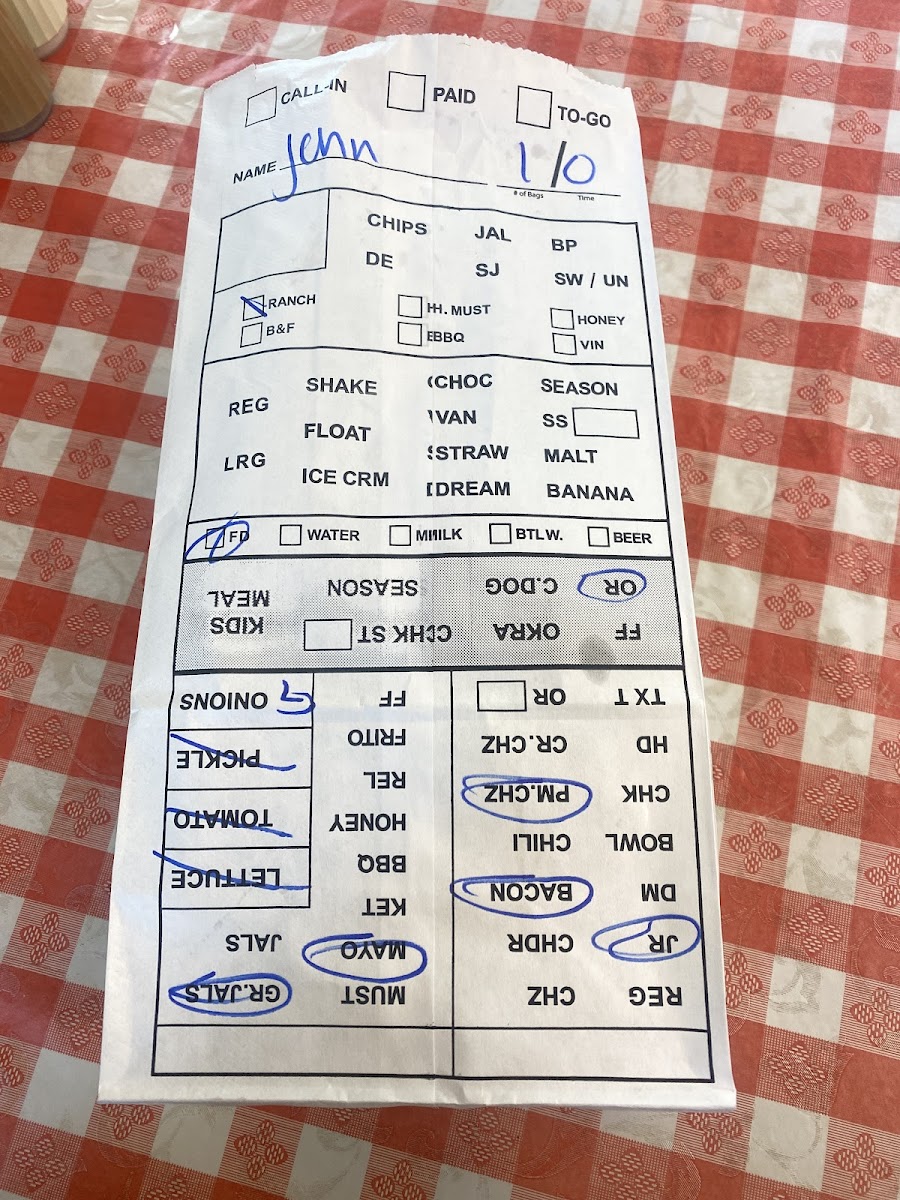 CALL-IN PAID TO-GO
NAME Jenn 1/0
# of Bags Time
CHIPS JAL BP
DE SJ SW / UN
RANCH H. MUST HONEY
B&F BBQ VIN
REG SHAKE CHOC SEASON
FLOAT VAN SS
LRG STRAW MALT
ICE CRM DREAM BANANA
FD WATER MILK BTL W. BEER
REG CHZ MUST GR.JALS
JR CHDR MAYO JALS
DM BACON KET LETTUCE
BOWL CHILI BBQ TOMATO
CHK PM.CHZ HONEY
HD CR.CHZ REL PICKLE
FRITO
TX T OR FF G ONIONS
FF OKRA CHK ST KIDS
OR C.DOG SEASON MEAL